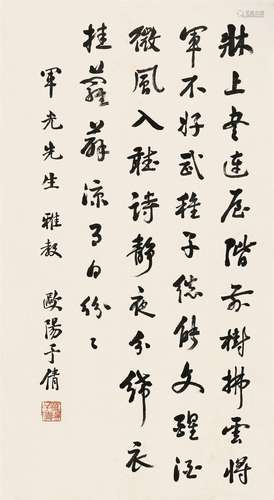 牀上書連屋階前樹拂雲將
軍不好武稚子總能文醒酒
微風入聽詩靜夜分絺衣
挂蘿薜涼月白紛〻
軍光先生 雅教 歐陽予倩